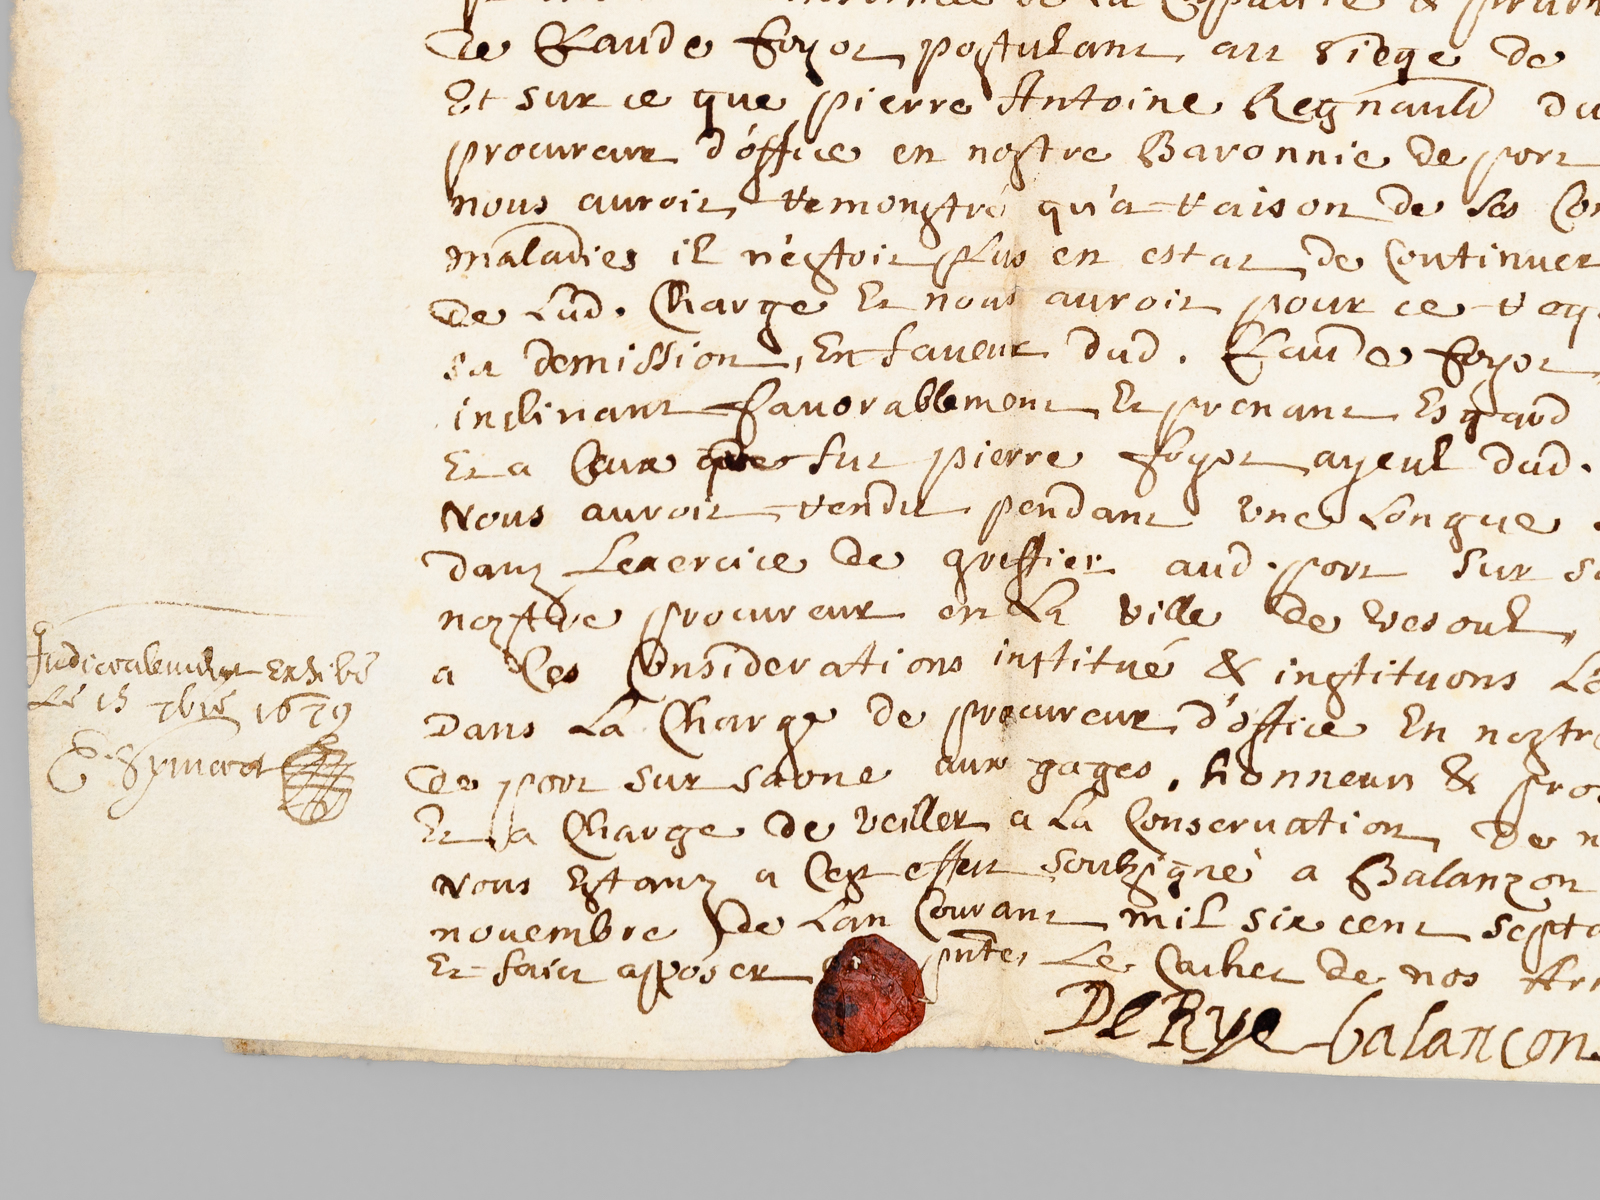 de la Capacité & prudh
de Claude foyot postulant au siege de
Et sur ce que pierre Antoine Regnauld du
procureur d'office en nostre Baronnie de port
nous auroit remonstré qu'a raison de ses Con
maladies il n'estoit plus en estat de Continuer
de Lad. Charge Et nous auroit pour ce requ
sa demission, En faveur dud. Claude foyot
inclinant favorablement Et prenant Esgard
Et a Ceux que fut pierre foyot ayeul dud.
Nous auroit rendu pendant vne Longue
danz Lexercice de greffier aud. port sur sa
noztre procureur en La ville de vesoul,
a Ces Considerations institué & instituons Le
Dans La Charge de procureur d'office En noztre
de port sur saone aux gages, honneurs & pro
Et a Charge de veiller a La Conseruation de n
Nous Estanz a Cest effect soubzigné a Balanzon
nouembre de Lan Courant mil six cent septa
Et faict aposer pntes Le Cachet de nos Arm
De Rye balancon
Judicialement Exhibé
Le 15 7bre 1679